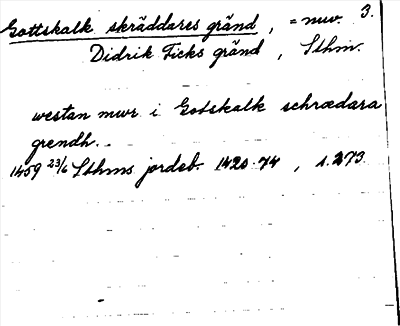 Gottskalk skräddares gränd, = nuv. 3.
Didrik Ficks gränd, Sthm.
westan mwr i Gotskalk schrædara
grendh.
1459 23/6 Sthms jordeb. 1420-74, s. 273.